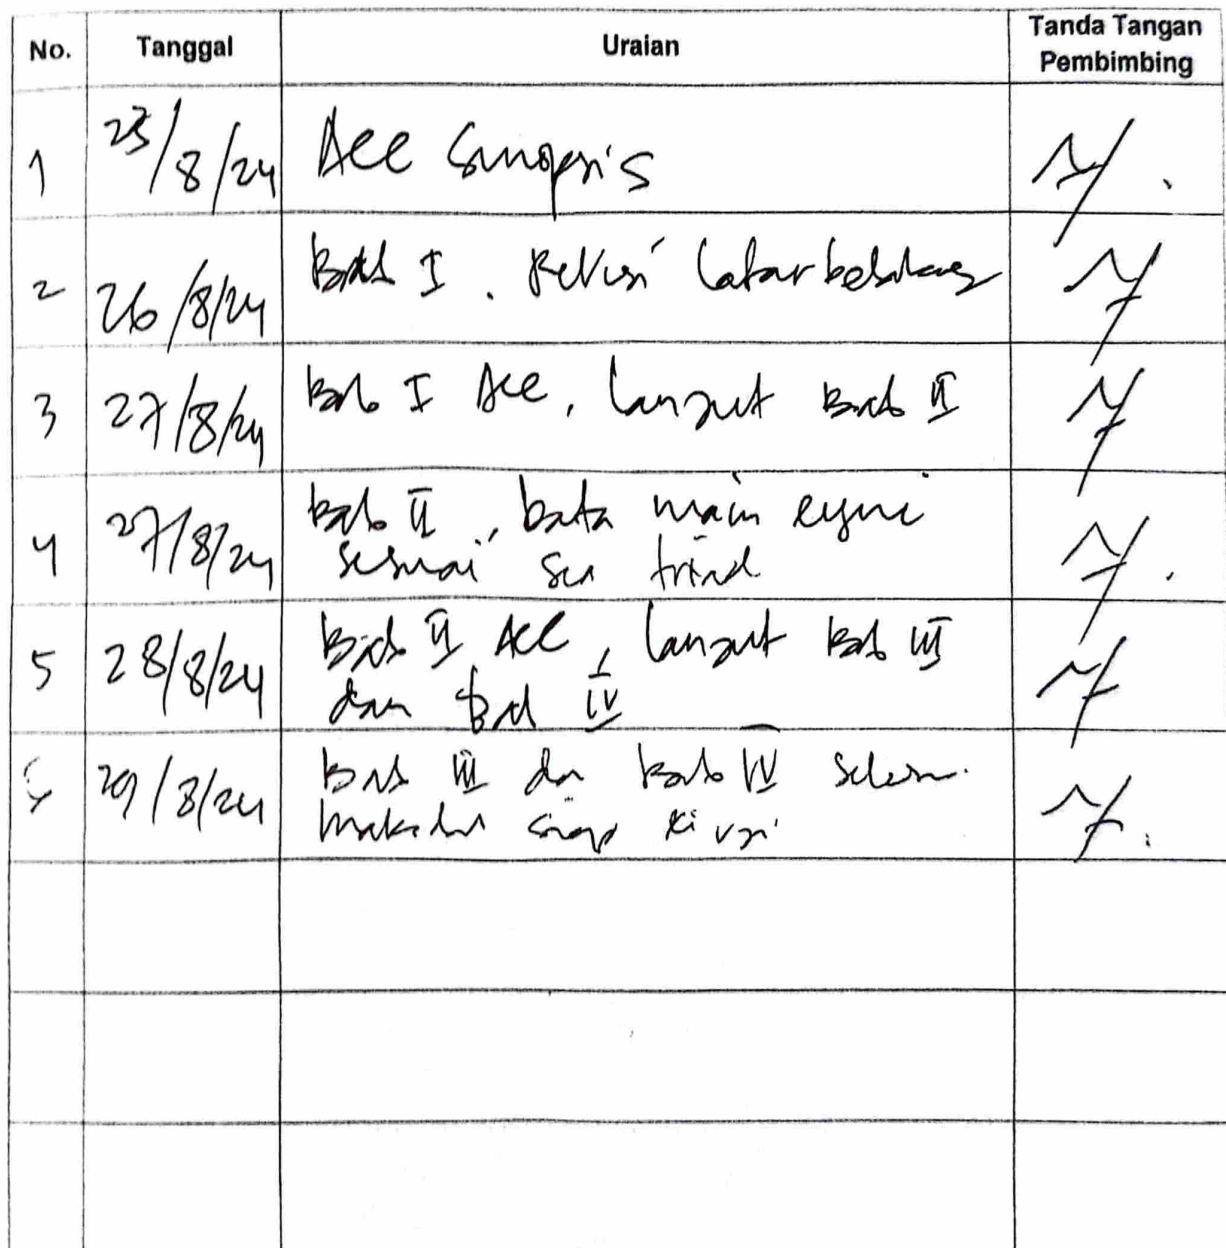 No. Tanggal Uraian Tanda Tangan
Pembimbing
1 23/8/24 Acc Sinopsis
2 26/8/24 Bab I. Revisi latar belakang
3 27/8/24 Bab I Acc, lanjut Bab II
4 27/8/24 Bab II, data main engine
sesuai sea trial
5 28/8/24 Bab II Acc, lanjut Bab III
dan Bab IV
29/8/24 Bab III dan Bab IV selesai.
makalah siap di uji